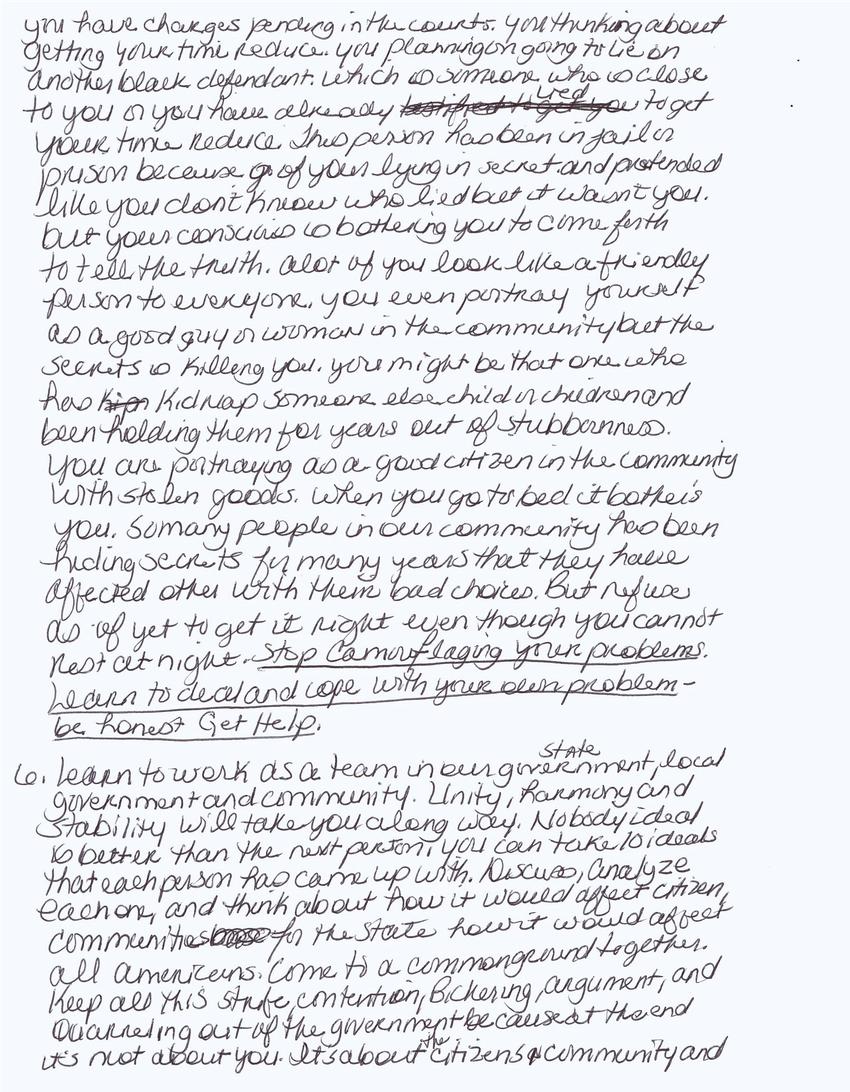 you have charges pending in the courts. you thinking about
getting your time reduce. you planning on going to lie on
another black defendant. which is someone who is close
to you or you have already lied to get
your time reduce. This person has been in jail or
prison because of your lying in secret and pretended
like you don't know who lied but it wasn't you.
but your conscious is bothering you to come forth
to tell the truth. alot of you look like a friendly
person to everyone. you even portray yourself
as a good guy or woman in the community but the
secrets is killing you. you might be that one who
has kidnap someone else child or children and
been holding them for years out of stubbornness.
you are portraying as a good citizen in the community
with stolen goods. when you go to bed it bothers
you. So many people in our community has been
hiding secrets for many years that they have
affected other with their bad choices. But refuse
as of yet to get it right even though you cannot
rest at night. Stop Camouflaging your problems.
Learn to deal and cope with your own problem -
be honest Get Help.
6. Learn to work as a team in our government, state local
government and community. Unity, harmony and
stability will take you along way. Nobody ideal
is better than the next person, you can take 10 ideals
that each person has came up with. Discuss, analyze
each one, and think about how it would affect citizen,
communities for the state how it would affect
all americans. Come to a commonground together.
Keep all this strife, contention, Bickering, argument, and
Quarreling out of the government because at the end
it's not about you. It's about the citizens & community and